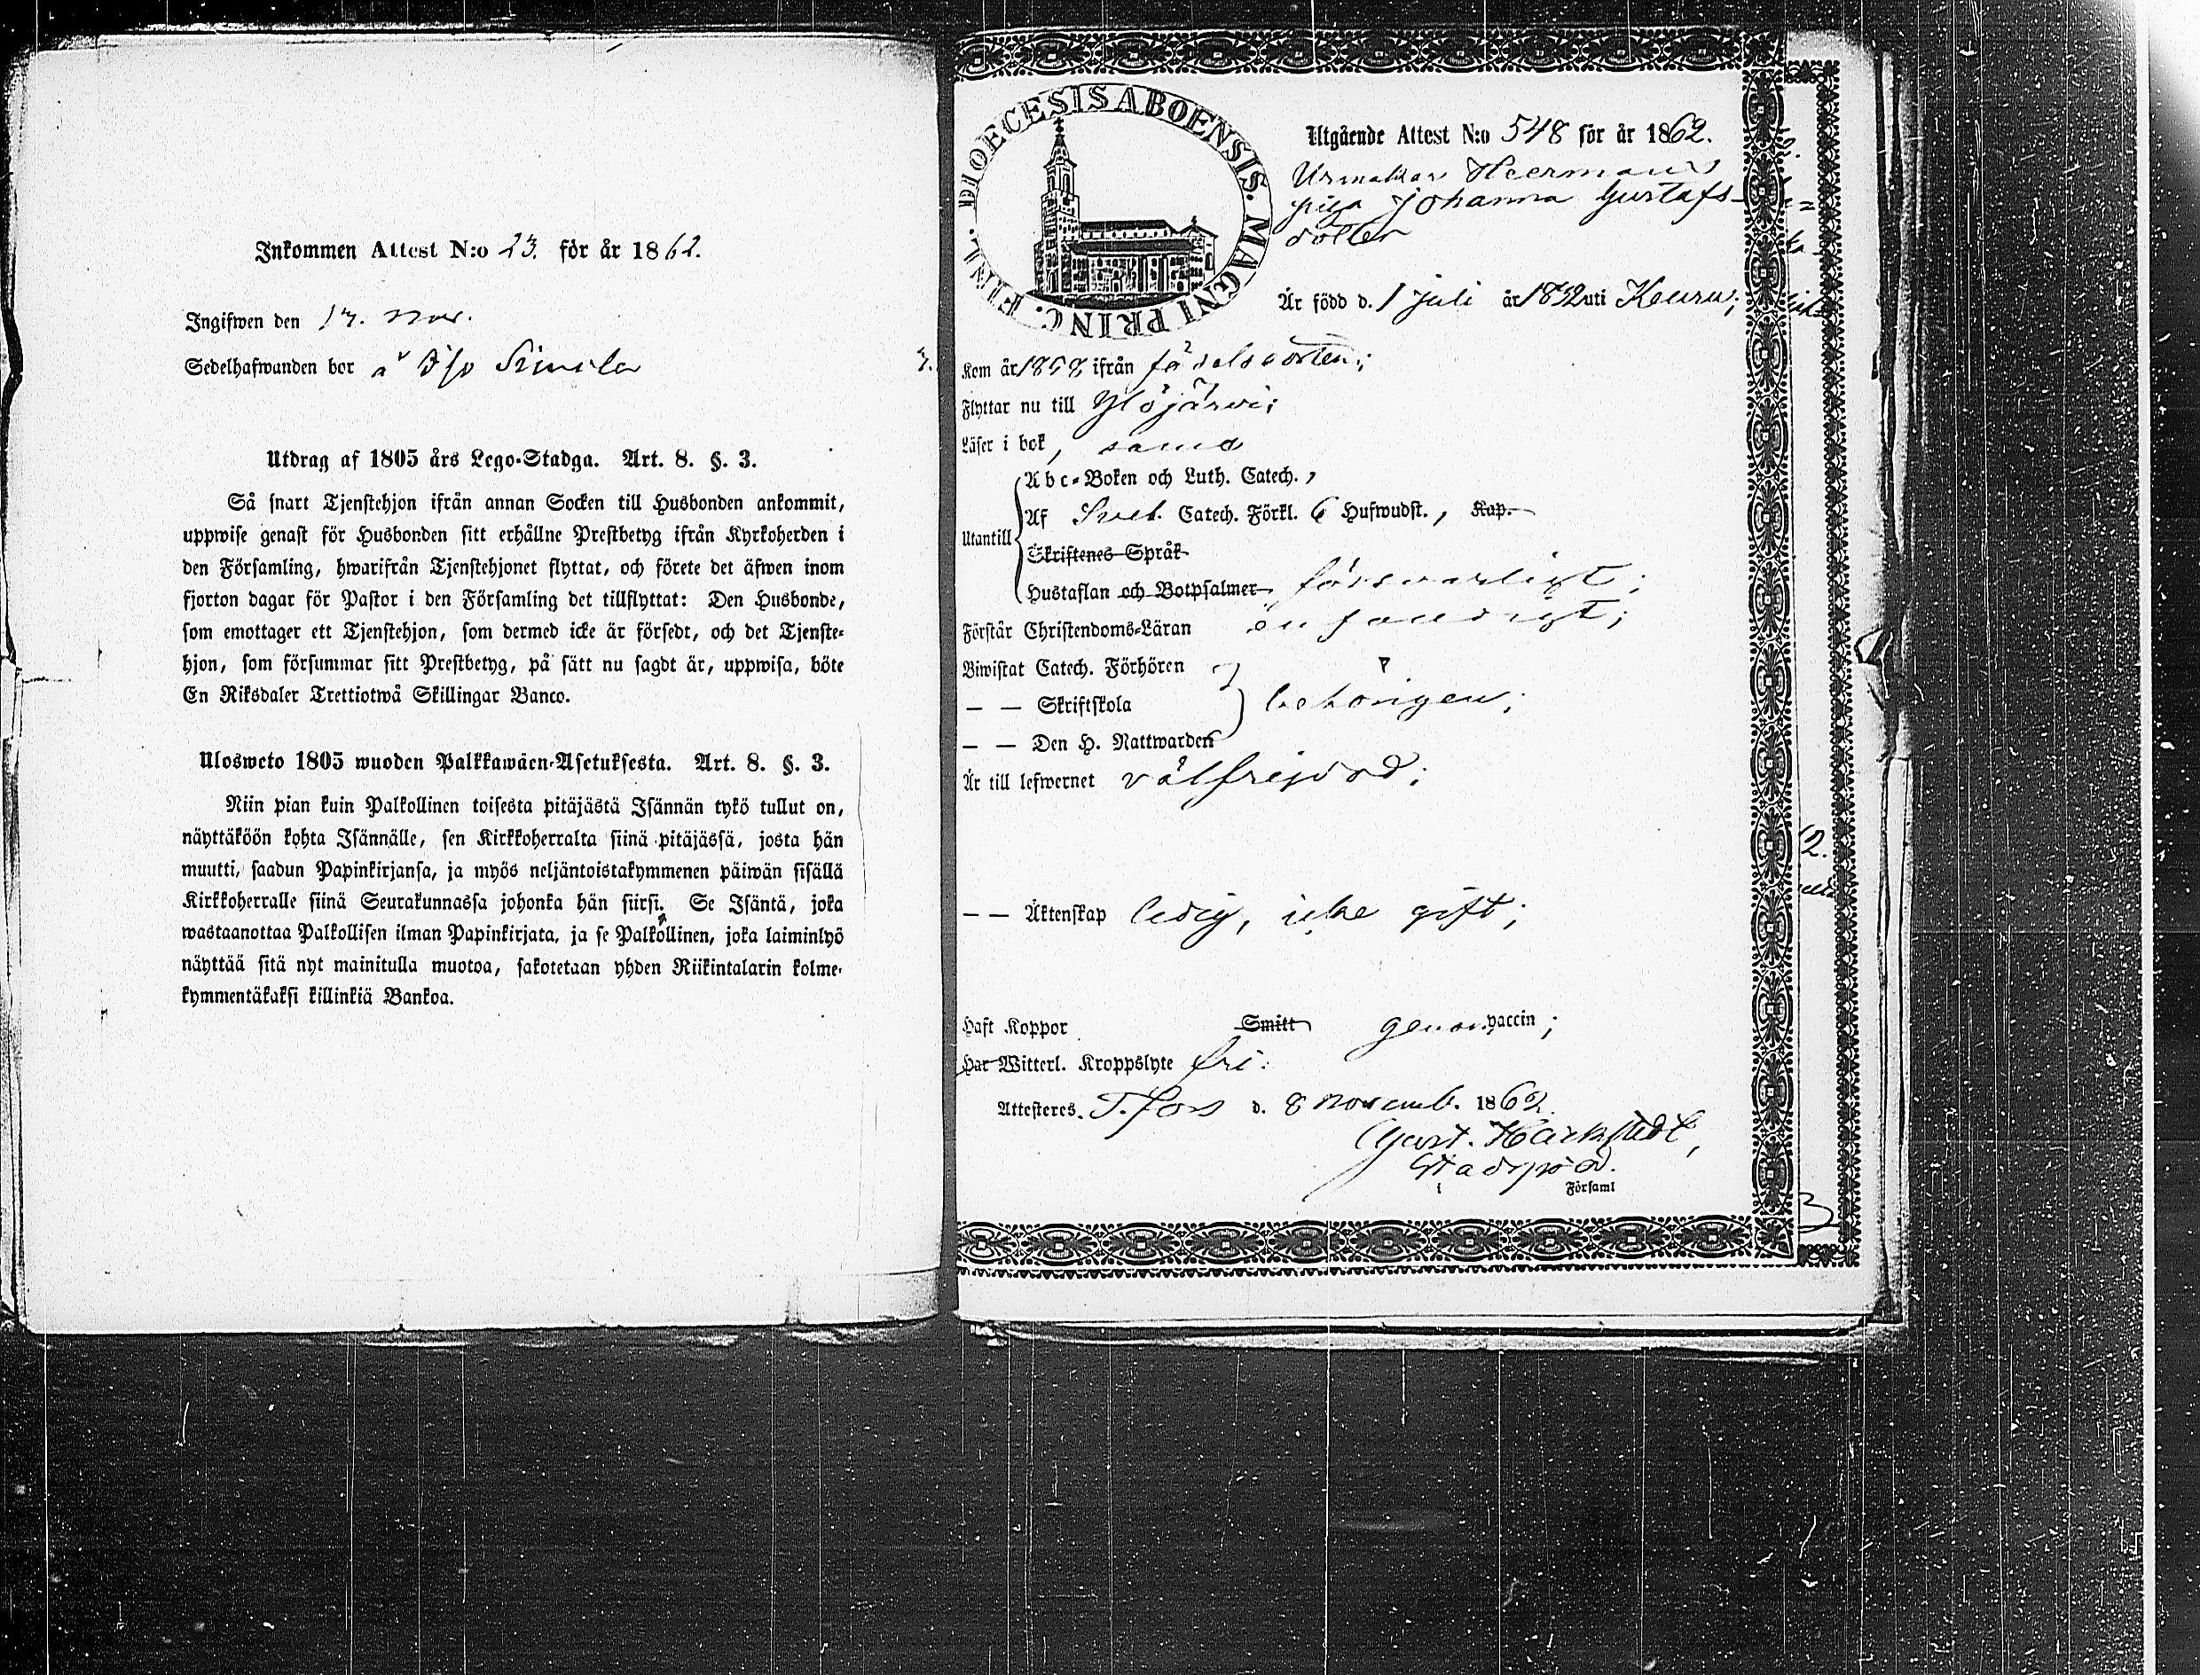 Inkommen Attest N:o 23. för år 1862.
Ingifwen den 17. Nov.
Sedelhafwanden bor å Iso Simila
Utdrag af 1805 års Lego-Stadga. Art. 8. §. 3.
Så snart Tjenstehjon ifrån annan Socken till Husbonden ankommit,
uppwise genast för Husbonden sitt erhållne Prestbetyg ifrån Kyrkoherden i
den Församling, hwarifrån Tjenstehjonet flyttat, och förete det äfwen inom
fjorton dagar för Pastor i den Församling det tillflyttat: Den Husbonde,
som emottager ett Tjenstehjon, som dermed icke är försedt, och det Tjenste-
hjon, som försummar sitt Prestbetyg, på sätt nu sagdt är, uppwisa, böte
En Riksdaler Trettiotwå Skillingar Banco.
Ulosweto 1805 wuoden Palkkawäen-Asetuksesta. Art. 8. §. 3.
Niin pian kuin Palkollinen toisesta pitäjästä Isännän tykö tullut on,
näyttäköön kohta Isännälle, sen Kirkkoherralta siinä pitäjässä, josta hän
muutti, saadun Papinkirjansa, ja myös neljäntoistakymmenen päiwän sisällä
Kirkkoherralle siinä Seurakunnassa johonka hän siirsi. Se Isäntä, joka
wastaanottaa Palkollisen ilman Papinkirjata, ja se Palkollinen, joka laiminlyö
näyttää sitä nyt mainitulla muotoa, sakotetaan yhden Riikintalarin kolme-
kymmentäkaksi killinkiä Bankoa.
DIOECESIS ABOENSIS. MAGNI PRINC. FINL.
Utgående Attest N:o 548 för år 1862.
Urmakar Heermans
piga Johanna Gustafs-
dotter
Är född d. 1 juli år 1832 uti Keuru;
Kom år 1858 ifrån födelseorten;
Flyttar nu till Ylöjärvi;
Läser i bok,
Abc-Boken och Luth. Catech.,
Af Sveb. Catech. Förkl. 6 Hufwudst., Kap.
Utantill
Skriftenes Språk
Hustaflan och Botpsalmer försvarligt;
Förstår Christendoms-Läran enfaldigt;
Biwistat Catech. Förhören
— — Skriftskola behörigen;
— — Den H. Nattwarden
Är till lefwernet välfrejdad;
— — Äktenskap ledig, icke gift;
Haft Koppor Smitt genom vaccin;
Har Witterl. Kroppslyte fri:
Attesteres. T.fors d. 8 novemb. 1862.
Gust.
i Församl